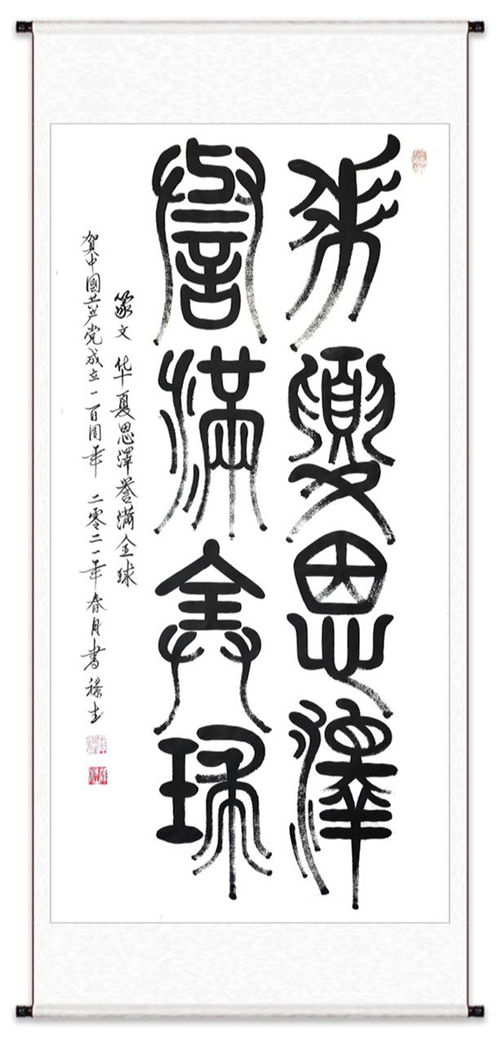 華夏恩澤
譽滿全球
篆文 华夏恩澤誉满全球
贺中國共产党成立一百周年 二零二一年春月書